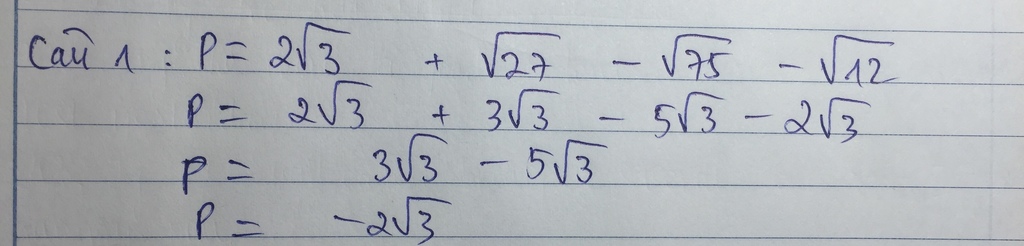 Câu 1 : P = 2√3 + √27 - √75 - √12
P = 2√3 + 3√3 - 5√3 - 2√3
P = 3√3 - 5√3
P = -2√3